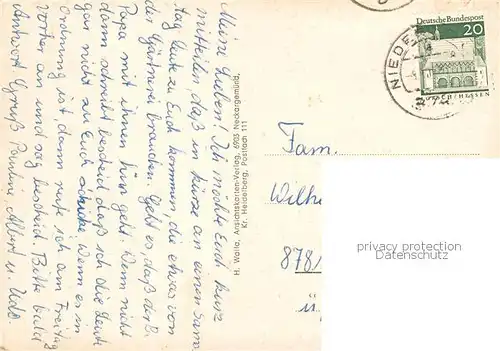 Meine Lieben! Ich möchte Euch kurz
mitteilen, daß in kürze an einen Sams
tag Leute zu Euch kommen, die etwas von
der Gärtnerei brauchen. Geht es, daß der B.
Papa mit ihnen hin geht. Wenn nicht
dann schreibt bescheid daß ich die Leute
gar nicht zu Euch schicke. Wenn es in
Ordnung ist, dann rufe ich am Freitag
vorher an und sag bescheid. Bitte bald
Antwort Gruß Pauline, Albert u. Udo.
H. Walla, Ansichtskarten-Verlag, 6903 Neckargemünd,
Kr. Heidelberg, Postfach 111
Deutsche Bundespost
20
NIEDE
Fam.
Wilhe
878
ü
privacy protection
VDM